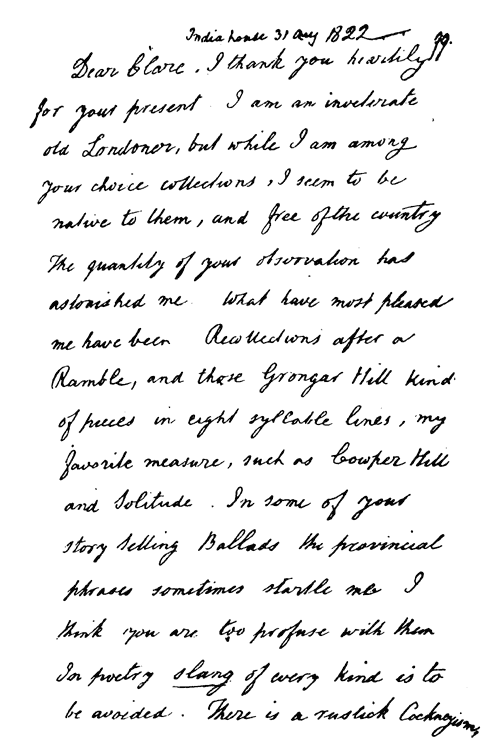 India house 31 Aug 1822
99.
Dear Clare. I thank you heartily
for your present I am an inveterate
old Londoner, but while I am among
your choice collections, I seem to be
native to them, and free of the country
The quantity of your observation has
astonished me. What have most pleased
me have been Recollections after a
Ramble, and those Grongar Hill kind
of pieces in eight syllable lines, my
favorite measure, such as Cowper Hill
and Solitude. In some of your
story telling Ballads the provincial
phrases sometimes startle me I
think you are too profuse with them
In poetry slang of every kind is to
be avoided. There is a rustick Cockneyism,